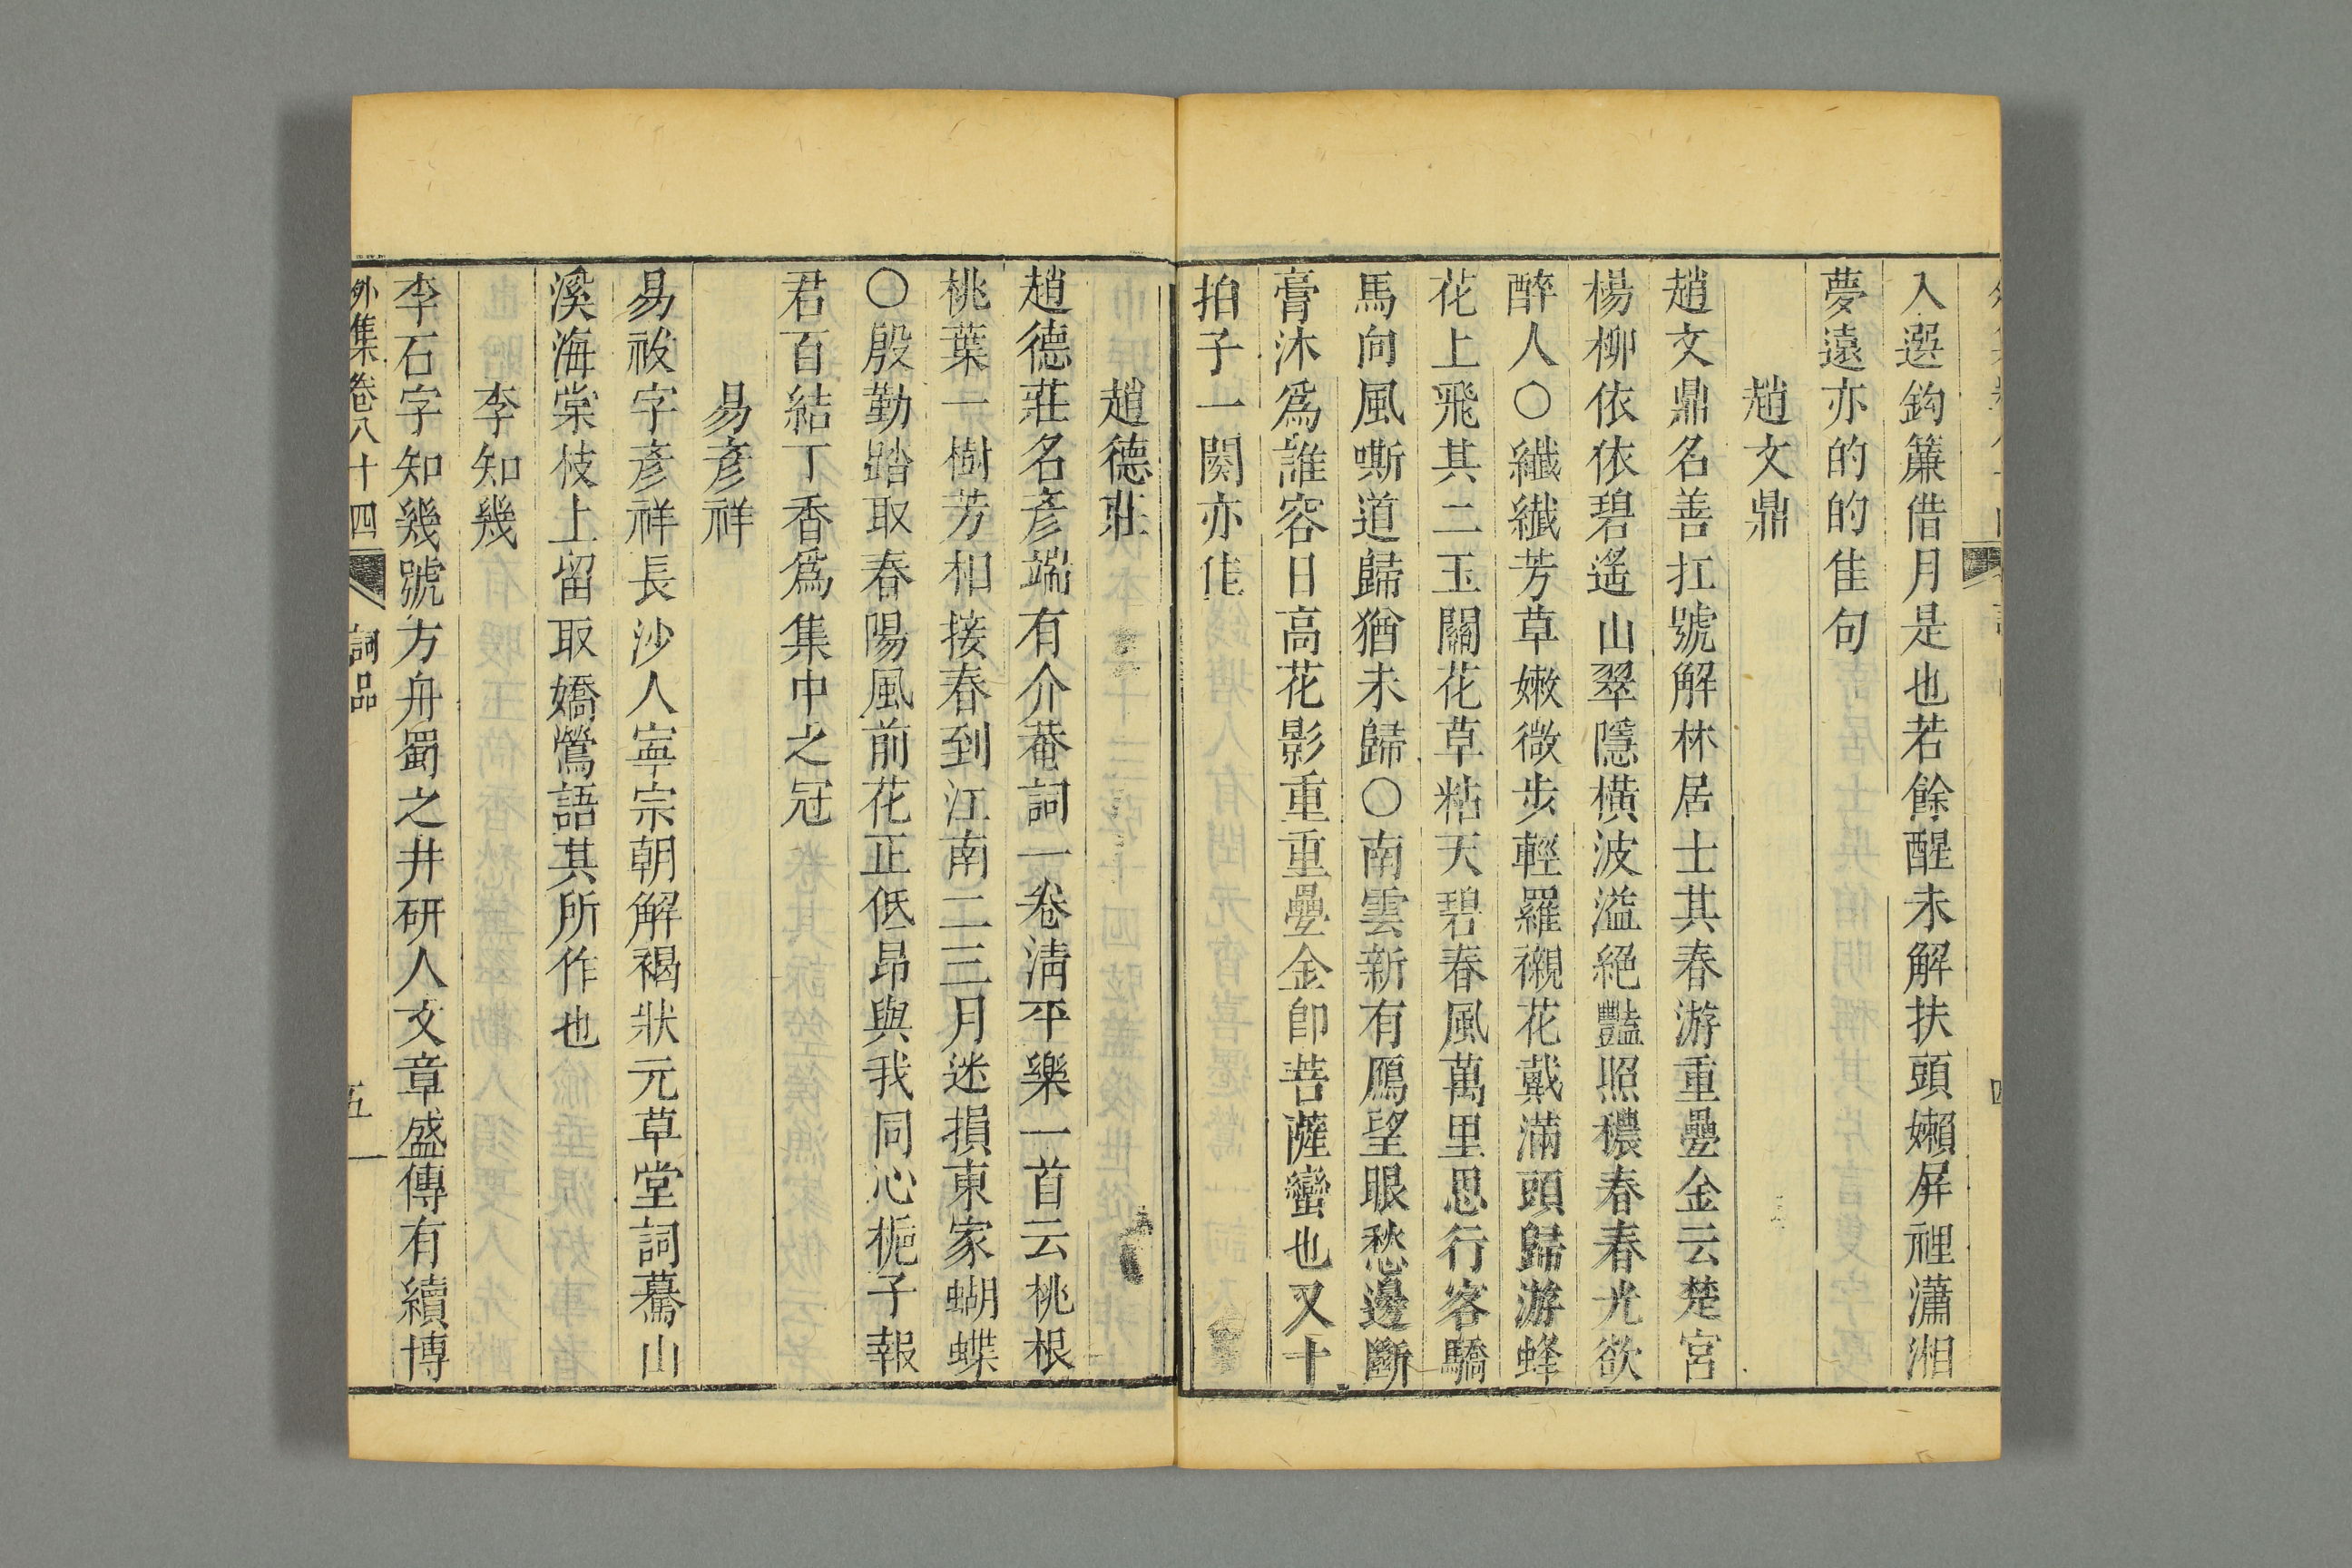 入選鈎簾借月是也若餘醒未解扶頭嬾屏裡瀟湘
夢遠亦的的隹句
趙文鼎
趙文鼎名善扛號解林居士其春游重疊金云楚宮
楊柳依依碧遙山翠隱橫波溢絕豔照穠春春光欲
醉人○纖纖芳草嫩微步輕羅襯花戴滿頭歸游蜂
花上飛其二玉關花草粘天碧春風萬里思行客驕
馬向風嘶道歸猶未歸○南雲新有鴈望眼愁邊斷
膏沐爲誰容日高花影重重疊金卽菩薩蠻也又十
拍子一闋亦佳
趙德莊
趙德莊名彥端有介菴詞一卷清平樂一首云桃根
桃葉一樹芳相接春到江南二三月迷損東家蝴蝶
○殷勤踏取春陽風前花正低昂與我同心梔子報
君百結丁香爲集中之冠
易彥祥
易祓字彥祥長沙人寧宗朝解褐狀元草堂詞驀山
溪海棠枝上留取嬌鶯語其所作也
李知幾
李石字知幾號方舟蜀之井研人文章盛傳有續博
外集卷八十四 詞品 五